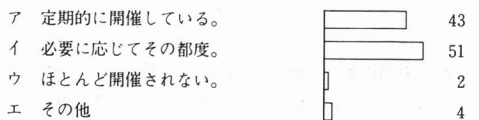 ア 定期的に開催している。 43
イ 必要に応じてその都度。 51
ウ ほとんど開催されない。 2
エ その他 4